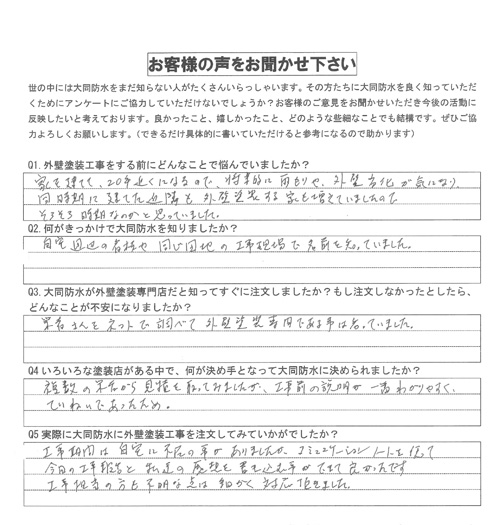 お客様の声をお聞かせ下さい
世の中には大同防水をまだ知らない人がたくさんいらっしゃいます。その方たちに大同防水を良く知っていただ
くためにアンケートにご協力していただけないでしょうか？お客様のご意見をお聞かせいただき今後の活動に
反映したいと考えております。良かったこと、嬉しかったこと、どのような些細なことでも結構です。ぜひご協
力よろしくお願いします。（できるだけ具体的に書いていただけると参考になるので助かります）
Q1.外壁塗装工事をする前にどんなことで悩んでいましたか？
家を建てて、20年近くになるので、将来的に雨もりや、外壁劣化が気になり、
同時期に建てた近隣も外壁塗装する家も増えていましたので
そろそろ時期なのかと思っていました。
Q2.何がきっかけで大同防水を知りましたか？
自宅周辺の看板や同じ団地の工事現場で名前を知っていました。
Q3.大同防水が外壁塗装専門店だと知ってすぐに注文しましたか？もし注文しなかったとしたら、
どんなことが不安になりましたか？
業者さんをネットで調べて外壁塗装専門である事は知っていました。
Q4いろいろな塗装店がある中で、何が決め手となって大同防水に決められましたか？
複数の業者から見積を取ってみましたが、工事前の説明が一番わかりやすく、
ていねいであったため。
Q5実際に大同防水に外壁塗装工事を注文してみていかがでしたか？
工事期間は自宅に不在の事がありましたが、コミュニケーションノートを使って
今日の工事報告と私達の感想を書き込む事ができて良かったです
工事担当の方も不明な点は細かく対応頂きました。